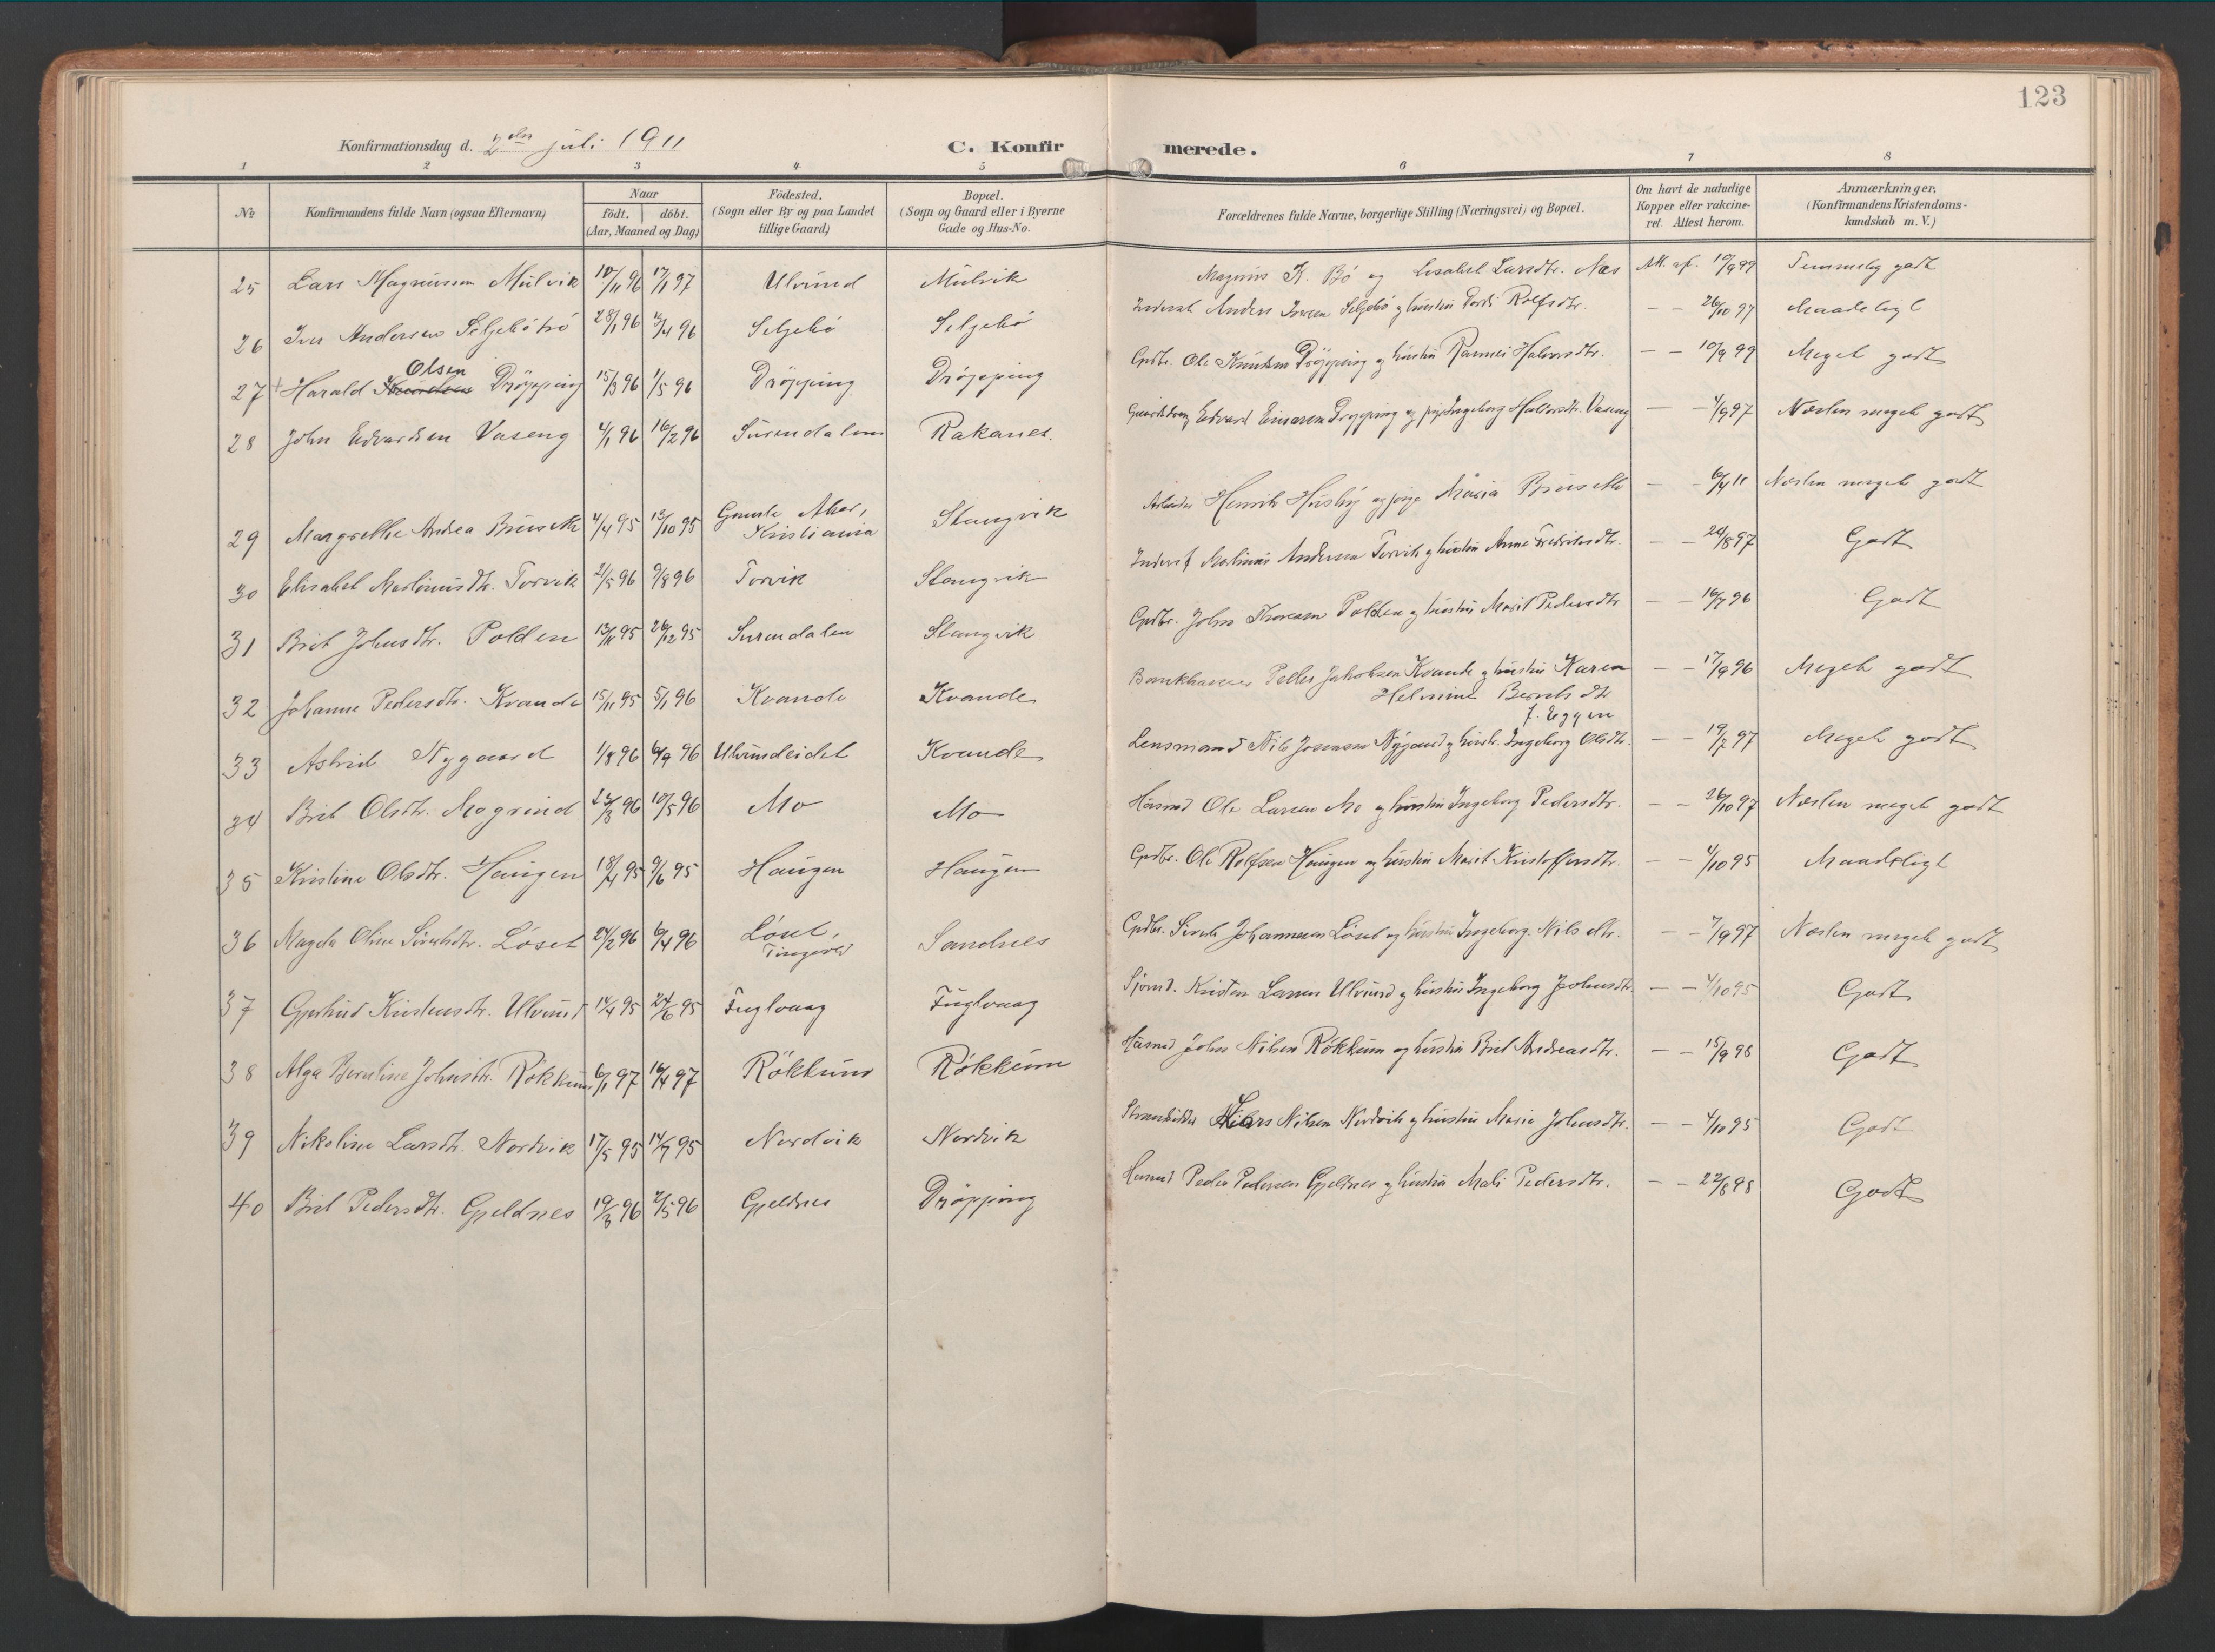 123
Konfirmationsdag d. 2den juli 1911
C. Konfirmerede.
1 2 3 4 5 6 7 8
№ Konfirmandens fulde Navn (ogsaa Efternavn) Naar födt. döbt. (Aar, Maaned og Dag) Födested. (Sogn eller By og paa Landet tillige Gaard) Bopæl. (Sogn og Gaard eller i Byerne Gade og Hus-No. Forældrenes fulde Navne, borgerlige Stilling (Næringsvei) og Bopæl. Om havt de naturlige Kopper eller vakcineret Attest herom. Anmærkninger, (Konfirmandens Kristendomskundskab m. V.)
25 Lars Magnussen Mulvik 10/11 96 17/1 97 Ulvund Mulvik Magnus K. Bö og Lisabet Larsdtr. Næs Att. af. 19/9 99 Temmelig godt
26 Iver Andersen Seljebötrö 28/1 96 3/4 96 Seljebö Seljebö Inderst Anders Iversen Seljebö og hustru Gordi Rolfsdtr. — — 26/10 97 Maadeligt
27 + Harald Olsen Dröpping 15/3 96 1/5 96 Dröpping Dröpping Grdbr. Ole Knudsen Dröpping og hustru Rannei Halvorsdtr. — — 19/9 99 Meget godt
28 John Edvardsen Vaseng 4/1 96 16/2 96 Surendalen Rakanes. Gaardsdreng Edvard Einarsen Dröpping og pige Ingeborg Halvorsdtr. Vaseng — — 4/9 97 Næsten meget godt
29 Margrethe Andrea Bruseth 4/4 95 13/10 95 Gamle Aker, Kristiania Stangvik Arbeider Henrik Husby og pige Maria Bruseth — — 6/4 11 Næsten meget godt
30 Elisabet Martinusdtr. Torvik 21/5 96 9/8 96 Torvik Stangvik Inderst Martinus Andersen Torvik og hustru Anne Fredriksdtr. — — 24/8 97 Godt
31 Brit Johnsdtr. Polden 13/11 95 26/12 95 Surendalen Stangvik Grdbr. John Thoresen Polden og hustru Marit Pedersdtr — — 16/7 96 Godt
32 Johanne Pedersdtr. Kvande 15/11 95 5/1 96 Kvande Kvande Bankkasserer Peder Jakobsen Kvande og hustru Karen Helmine Berntsdtr f. Eggen — — 17/9 96 Meget godt
33 Astrid Nygaard 1/8 96 6/9 96 Ulvundeidet Kvande Lensmand Nils Josensen Nygaard og hustr. Ingeborg Olsdtr. — — 19/7 97 Meget godt
34 Brit Olsdtr. Mogrind 23/3 96 10/5 96 Mo Mo Husmd Ole Larsen Mo og hustru Ingeborg Pedersdtr. — — 26/10 97 Næsten meget godt
35 Kristine Olsdtr. Haugen 18/4 95 9/6 95 Haugen Haugen Grdbr. Ole Rolfsen Haugen og hustru Marit Kristoffersdtr. — — 4/10 95 Maadeligt
36 Magda Oline Sivertsdtr. Löset 24/2 96 6/4 96 Löset, Tingvold Sandnes Grdbr. Sivert Johannesen Löset og hustru Ingeborg Nilsdtr. — — 7/9 97 Næsten meget godt
37 Gjertrud Kristensdtr. Ulvund 14/4 95 24/6 95 Fuglvaag Fuglvaag Sjömd. Kristen Larsen Ulvund og hustru Ingeborg Johnsdtr. — — 4/10 95 Godt
38 Alga Berntine Johnsdtr. Rökkum 6/1 97 16/4 97 Rökkum Rökkum Husmd John Nilsen Rökkum og hustru Brit Andreasdtr. — — 15/9 98 Godt
39 Nikoline Larsdtr. Nordvik 17/5 95 14/7 95 Nordvik Nordvik Strandsidder Lars Nilsen Nordvik og hustru Marie Johnsdtr. — — 4/10 95 Godt
40 Brit Pedersdtr. Gjeldnes 19/3 96 2/5 96 Gjeldnes Dröpping Husmd Peder Pedersen Gjeldnes og hustru Mali Pedersdtr. — — 22/8 98 Godt